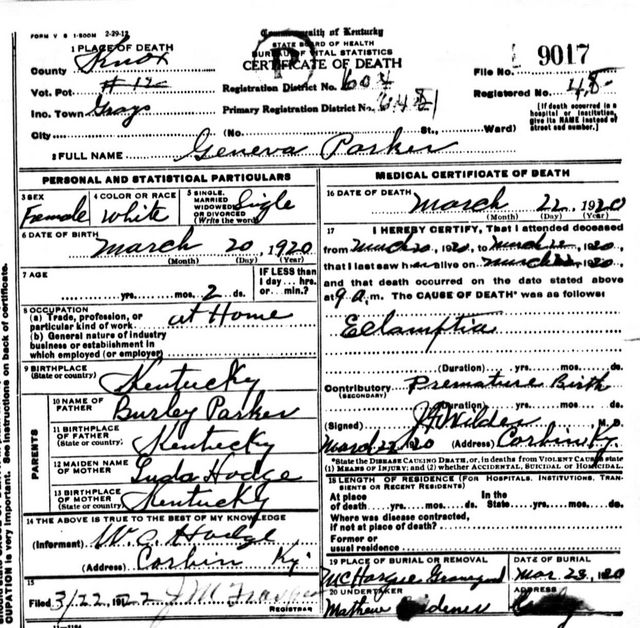 FORM V S 1-500M 2-29-12
Commonwealth of Kentucky
STATE BOARD OF HEALTH
BUREAU OF VITAL STATISTICS
CERTIFICATE OF DEATH
1 PLACE OF DEATH
County Knox
Vot. Pot. # 12
Inc. Town Grays
City
Registration District No. 604
Primary Registration District No.
File No. 9017
Registered No. 48
[If death occurred in a
hospital or institution,
give its NAME instead of
street and number.]
(No. St., Ward)
2 FULL NAME Geneva Parker
PERSONAL AND STATISTICAL PARTICULARS
3 SEX Female
4 COLOR OR RACE White
5 SINGLE, MARRIED WIDOWED OR DIVORCED (Write the word) Sigle
6 DATE OF BIRTH
March 20, 1920
(Month) (Day) (Year)
7 AGE
yrs. mos. 2 ds.
IF LESS than
1 day... hrs.
or... min.?
8 OCCUPATION
(a) Trade, profession, or
particular kind of work at Home
(b) General nature of industry
business or establishment in
which employed (or employer)
9 BIRTHPLACE
(State or country) Kentucky
PARENTS
10 NAME OF
FATHER Burley Parker
11 BIRTHPLACE
OF FATHER
(State or country) Kentucky
12 MAIDEN NAME
OF MOTHER Luda Hodge
13 BIRTHPLACE
OF MOTHER
(State or country) Kentucky
14 THE ABOVE IS TRUE TO THE BEST OF MY KNOWLEDGE
(Informant) W. C. Hodge
(Address) Corbin Ky
15
Filed 3/22, 1922
REGISTRAR
MEDICAL CERTIFICATE OF DEATH
16 DATE OF DEATH
March 22, 1920
(Month) (Day) (Year)
17 I HEREBY CERTIFY, That I attended deceased
from March 20, 1920, to March 22, 1920,
that I last saw her alive on March 22, 1920,
and that death occurred on the date stated above
at 9 a.m. The CAUSE OF DEATH* was as follows:
Eclamptia
(Duration) yrs. mos. ds.
Contributory Premature Birth
(SECONDARY)
(Duration) yrs. mos. ds.
(Signed) Wilder M.D.
March 22, 1920 (Address) Corbin Ky.
*State the DISEASE CAUSING DEATH, or, in deaths from VIOLENT CAUSES state
(1) MEANS OF INJURY; and (2) whether ACCIDENTAL, SUICIDAL or HOMICIDAL.
18 LENGTH OF RESIDENCE (FOR HOSPITALS, INSTITUTIONS, TRANSIENTS OR RECENT RESIDENTS)
At place In the
of death yrs. mos. ds. State yrs. mos. ds.
Where was disease contracted,
if not at place of death?
Former or
usual residence
19 PLACE OF BURIAL OR REMOVAL
McHargue Graveyard
DATE OF BURIAL
Mar 23, 1920
20 UNDERTAKER
Mathew
ADDRESS
CUPATION is very important. See instructions on back of certificate.